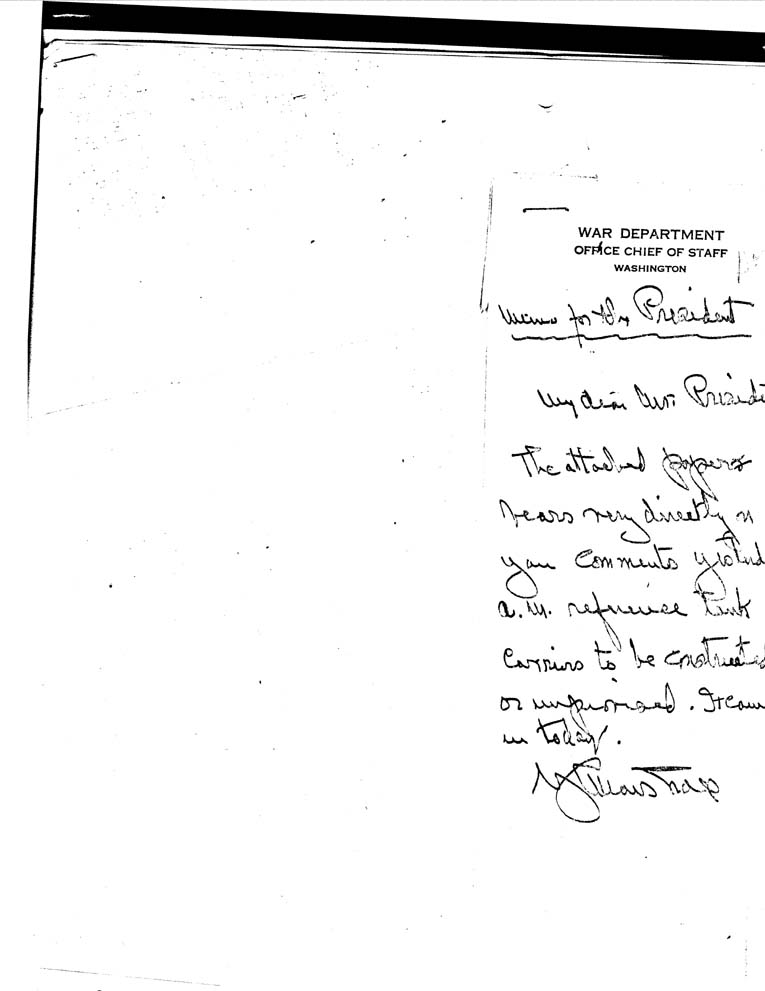 WAR DEPARTMENT
OFFICE CHIEF OF STAFF
WASHINGTON
Memo for the President
My dear Mr. Preside
The attached papers
bears very directly on
your comments yesterd
a.m. reference tank
carriers to be constructed
or improvised. It came
in today.
GCMarshall